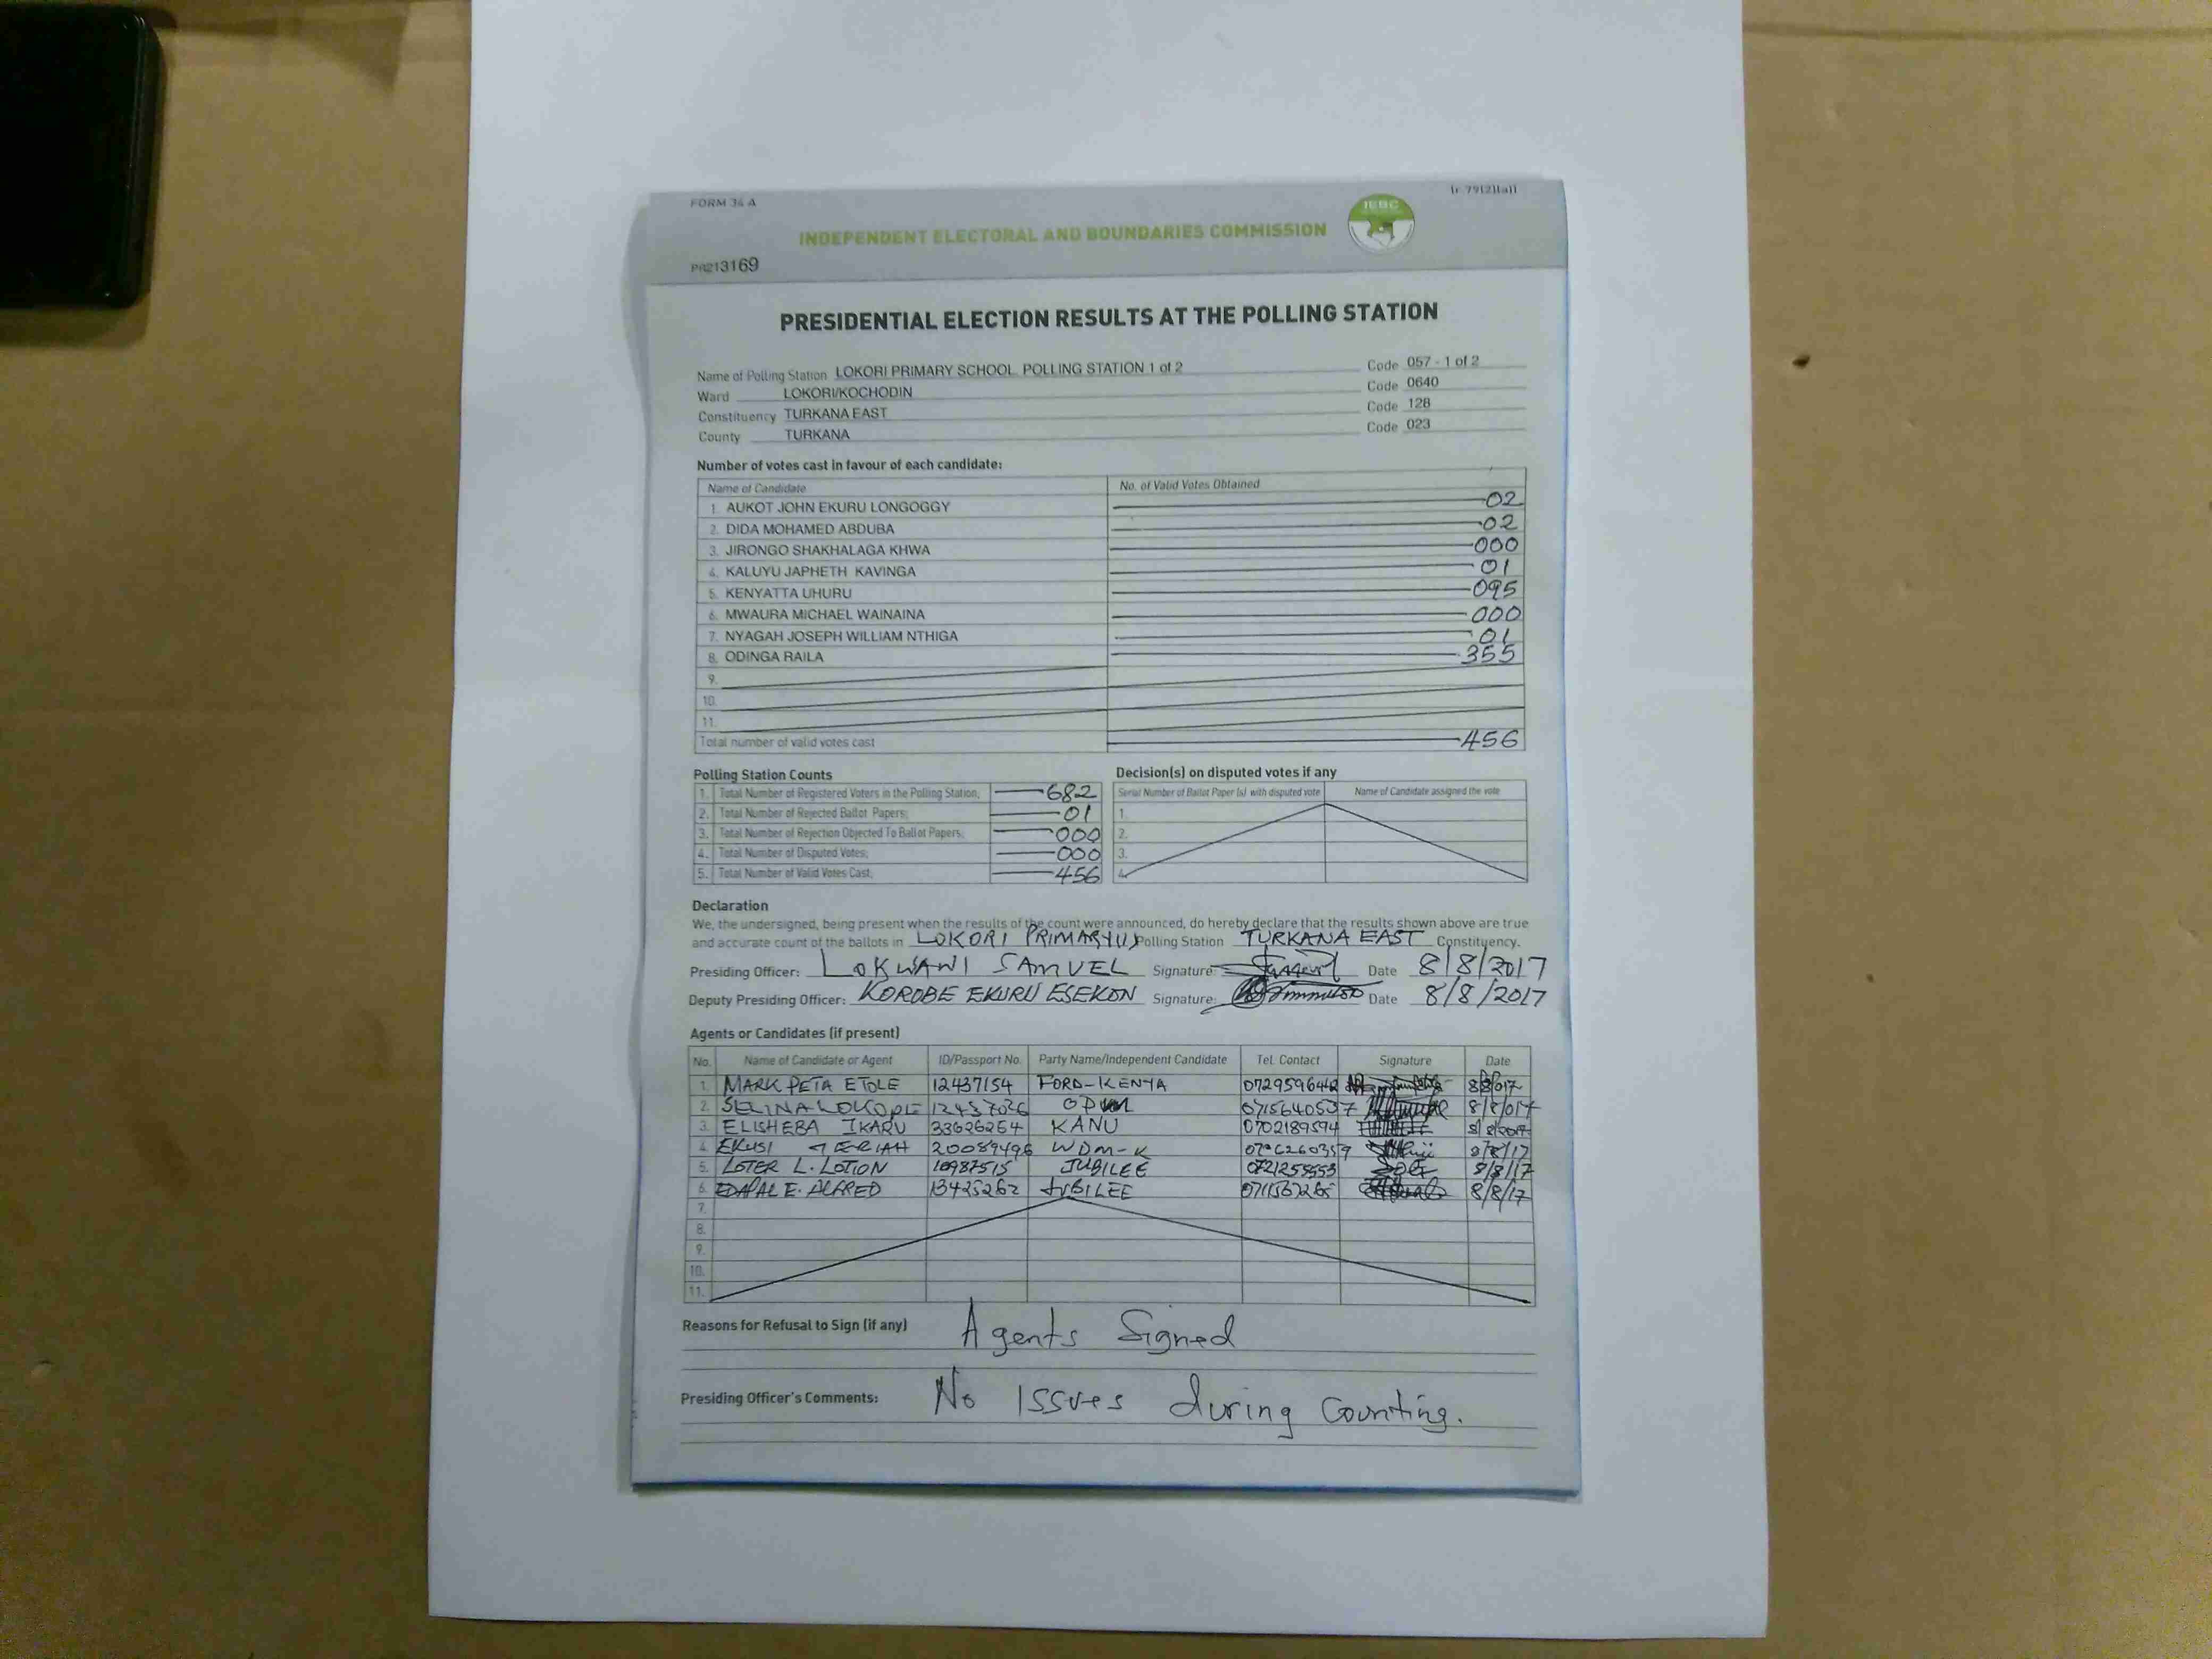 FORM 34 A
INDEPENDENT ELECTORAL AND BOUNDARIES COMMISSION
IEBC
PR213169
PRESIDENTIAL ELECTION RESULTS AT THE POLLING STATION
Name of Polling Station LOKORI PRIMARY SCHOOL POLLING STATION 1 of 2 Code 057 - 1 of 2
Ward LOKORI/KOCHODIN Code 0640
Constituency TURKANA EAST Code 128
County TURKANA Code 023
Number of votes cast in favour of each candidate:
Name of Candidate No. of Valid Votes Obtained
1. AUKOT JOHN EKURU LONGOGGY 02
2. DIDA MOHAMED ABDUBA 02
3. JIRONGO SHAKHALAGA KHWA 000
4. KALUYU JAPHETH KAVINGA 01
5. KENYATTA UHURU 095
6. MWAURA MICHAEL WAINAINA 000
7. NYAGAH JOSEPH WILLIAM NTHIGA 01
8. ODINGA RAILA 355
9.
10.
11.
Total number of valid votes cast 456
Polling Station Counts
1. Total Number of Registered Voters in the Polling Station; 682
2. Total Number of Rejected Ballot Papers; 01
3. Total Number of Rejection Objected To Ballot Papers; 000
4. Total Number of Disputed Votes; 000
5. Total Number of Valid Votes Cast; 456
Decision(s) on disputed votes if any
Serial Number of Ballot Paper (s) with disputed vote Name of Candidate assigned the vote
1.
2.
3.
4.
Declaration
We, the undersigned, being present when the results of the count were announced, do hereby declare that the results shown above are true
and accurate count of the ballots in LOKORI PRIMARY(1) Polling Station TURKANA EAST Constituency.
Presiding Officer: LOKWAWI SAMUEL Signature: Date 8/8/2017
Deputy Presiding Officer: KOROBE EKURU ESEKON Signature: Date 8/8/2017
Agents or Candidates (if present)
No. Name of Candidate or Agent ID/Passport No. Party Name/Independent Candidate Tel. Contact Signature Date
1. MARK PETA ETOLE 12437154 FORD-KENYA 8/8/017
2. SELINA ODM 0715640537 8/8/017
3. ELISHEBA IKARU 33626254 KANU 0702189594
4. EKUSI 20089496 WDM-K 8/8/17
5. LOTER L. LOTION 10987515 JUBILEE 8/8/17
6. EDAPAL E. ALFRED 13425262 JUBILEE 8/8/17
7.
8.
9.
10.
11.
Reasons for Refusal to Sign (if any) Agents Signed
Presiding Officer's Comments: No Issues during Counting.